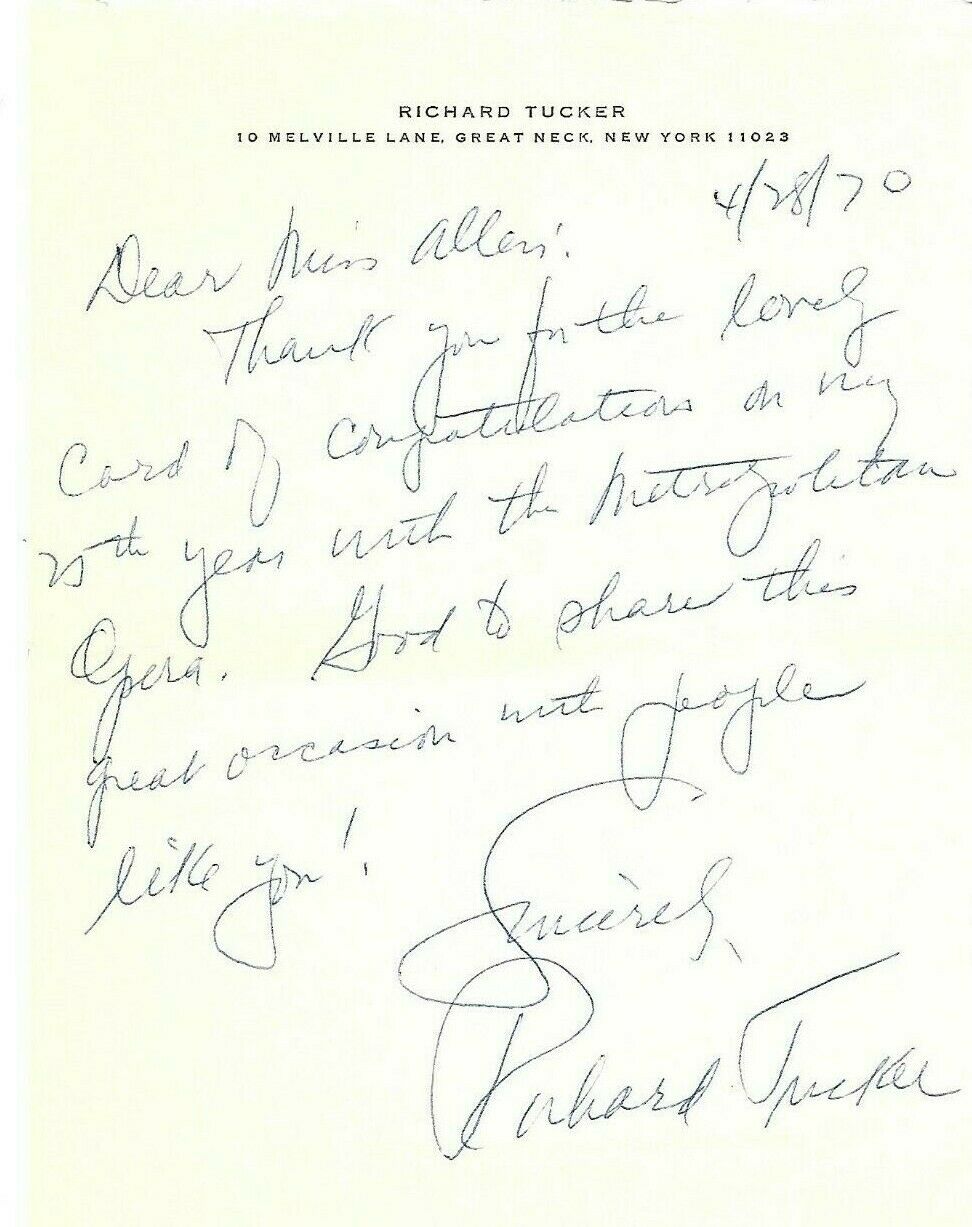 RICHARD TUCKER
10 MELVILLE LANE, GREAT NECK, NEW YORK 11023
4/28/70
Dear Miss Allen!
Thank you for the lovely
card of congratulations on my
25th year with the Metropolitan
Opera. Good to share this
great occasion with people
like you!
Sincerely,
Richard Tucker